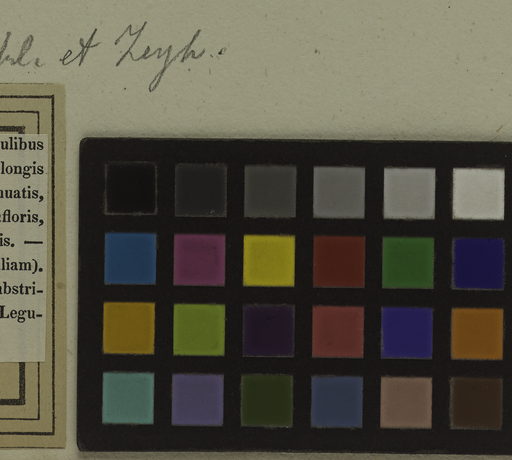 et Zeyh.
ulibus
longis
nuatis,
floris,
is. —
liam).
bstri-
Legu-